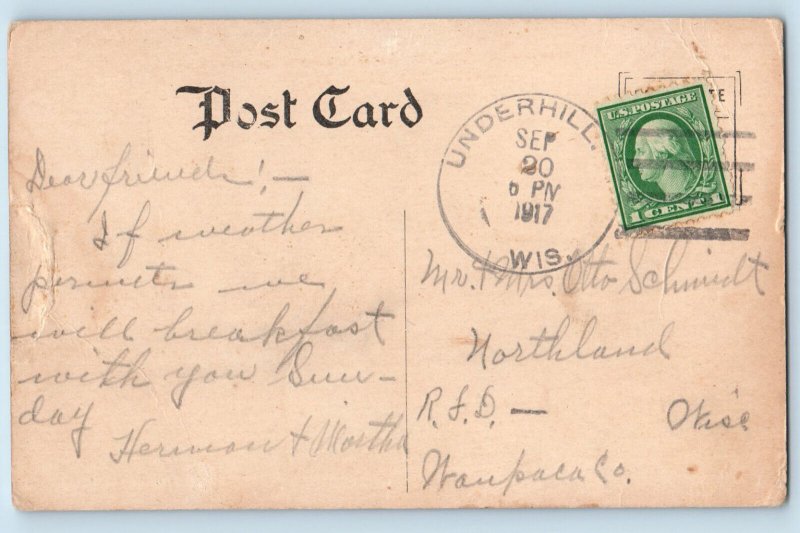 Post Card
UNDERHILL.
SEP
20
6 PM
1917
WIS.
U.S. POSTAGE
1 CENT 1
Dear friends! —
If weather
permits we
will breakfast
with you Sun-
day
Herman & Martha
Mr. & Mrs. Otto Schmidt
Northland
R. F. D. —
Wisc
Waupaca Co.